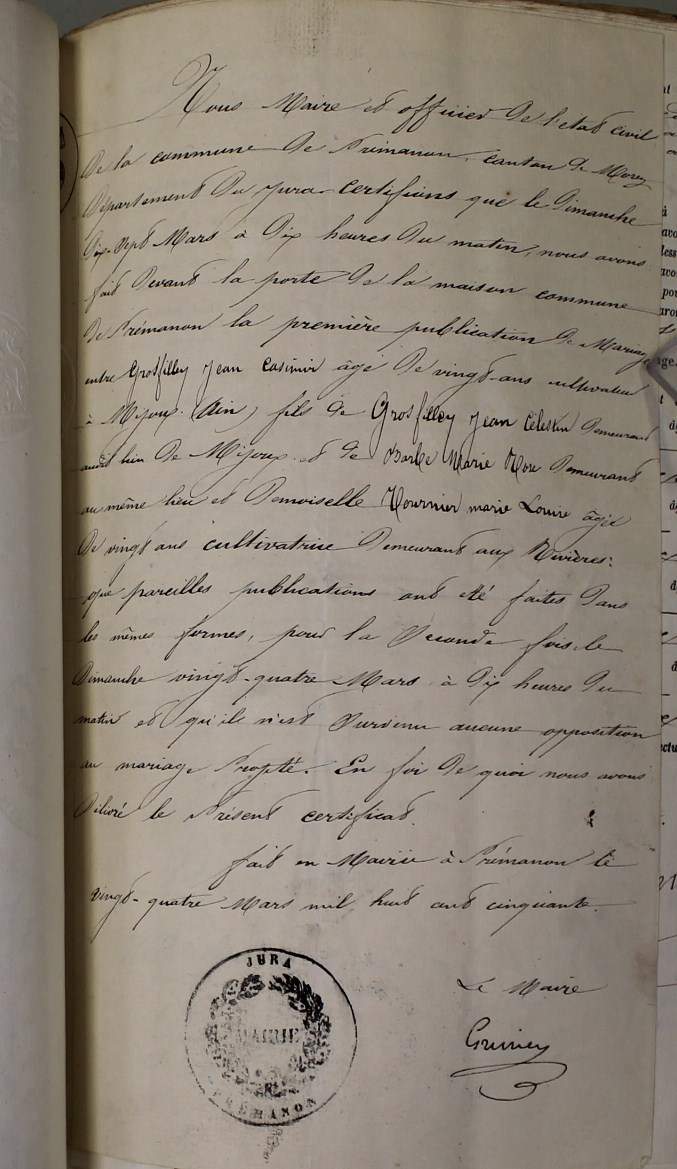 Nous Maire et officier de l'etat civil
de la commune de Prémanon, canton de Morez
département du Jura certifions que le Dimanche
dix-sept Mars à dix heures du matin, nous avons
fait devant la porte de la maison commune
de Prémanon la première publication de Mariage
entre Grosfilley Jean Casimir âgé de vingt-ans cultivateur
à Mijoux (Ain) fils de Grosfilley Jean Célestin demeurant
audit lieu de Mijoux et de Barbe Marie Rose demeurant
au même lieu et Demoiselle Tournier marie Louise âgée
de vingt ans cultivatrice demeurant aux Rivières:
que pareilles publications ont été faites dans
les mêmes formes, pour la seconde fois, le
Dimanche vingt-quatre Mars à dix heures du
matin et qu'il n'est survenu aucune opposition
au mariage Projeté. En foi de quoi nous avons
délivré le Présent certificat.
fait en Mairie à Prémanon le
vingt-quatre Mars mil huit cent cinquante.
JURA
MAIRIE
PRÉMANON
Le Maire